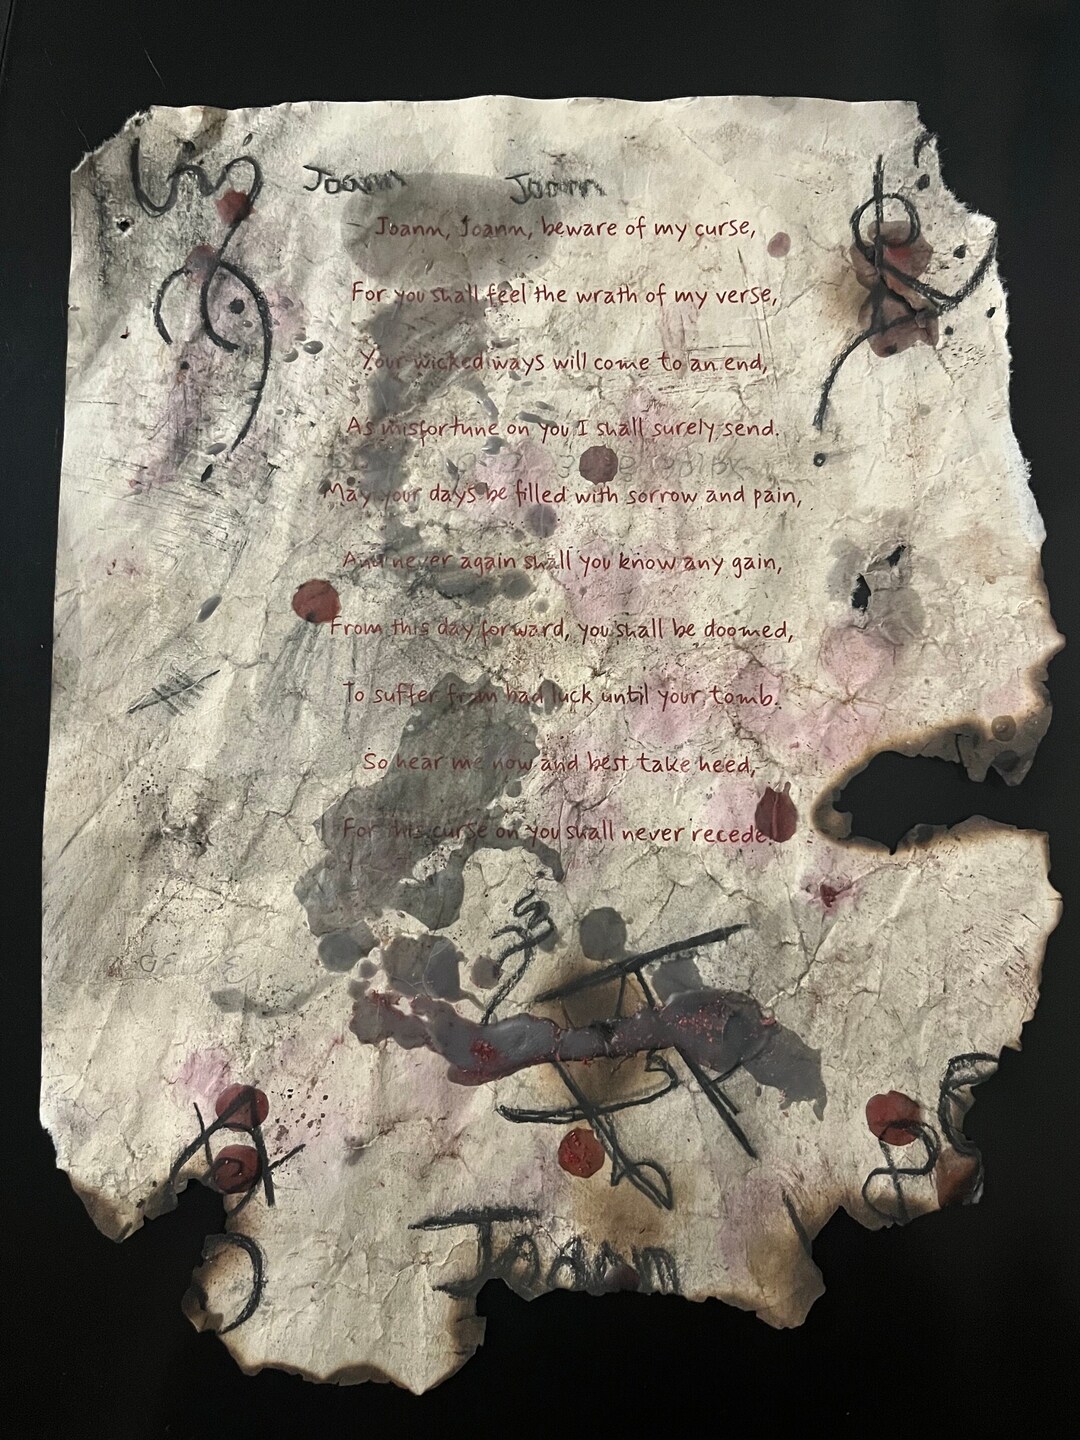 Joann Joann
Joann, Joann, beware of my curse,
For you shall feel the wrath of my verse,
Your wicked ways will come to an end,
As misfortune on you I shall surely send.
May your days be filled with sorrow and pain,
And never again shall you know any gain,
From this day forward, you shall be doomed,
To suffer from bad luck until your tomb.
So hear me now and best take heed,
For this curse on you shall never recede!
Joann